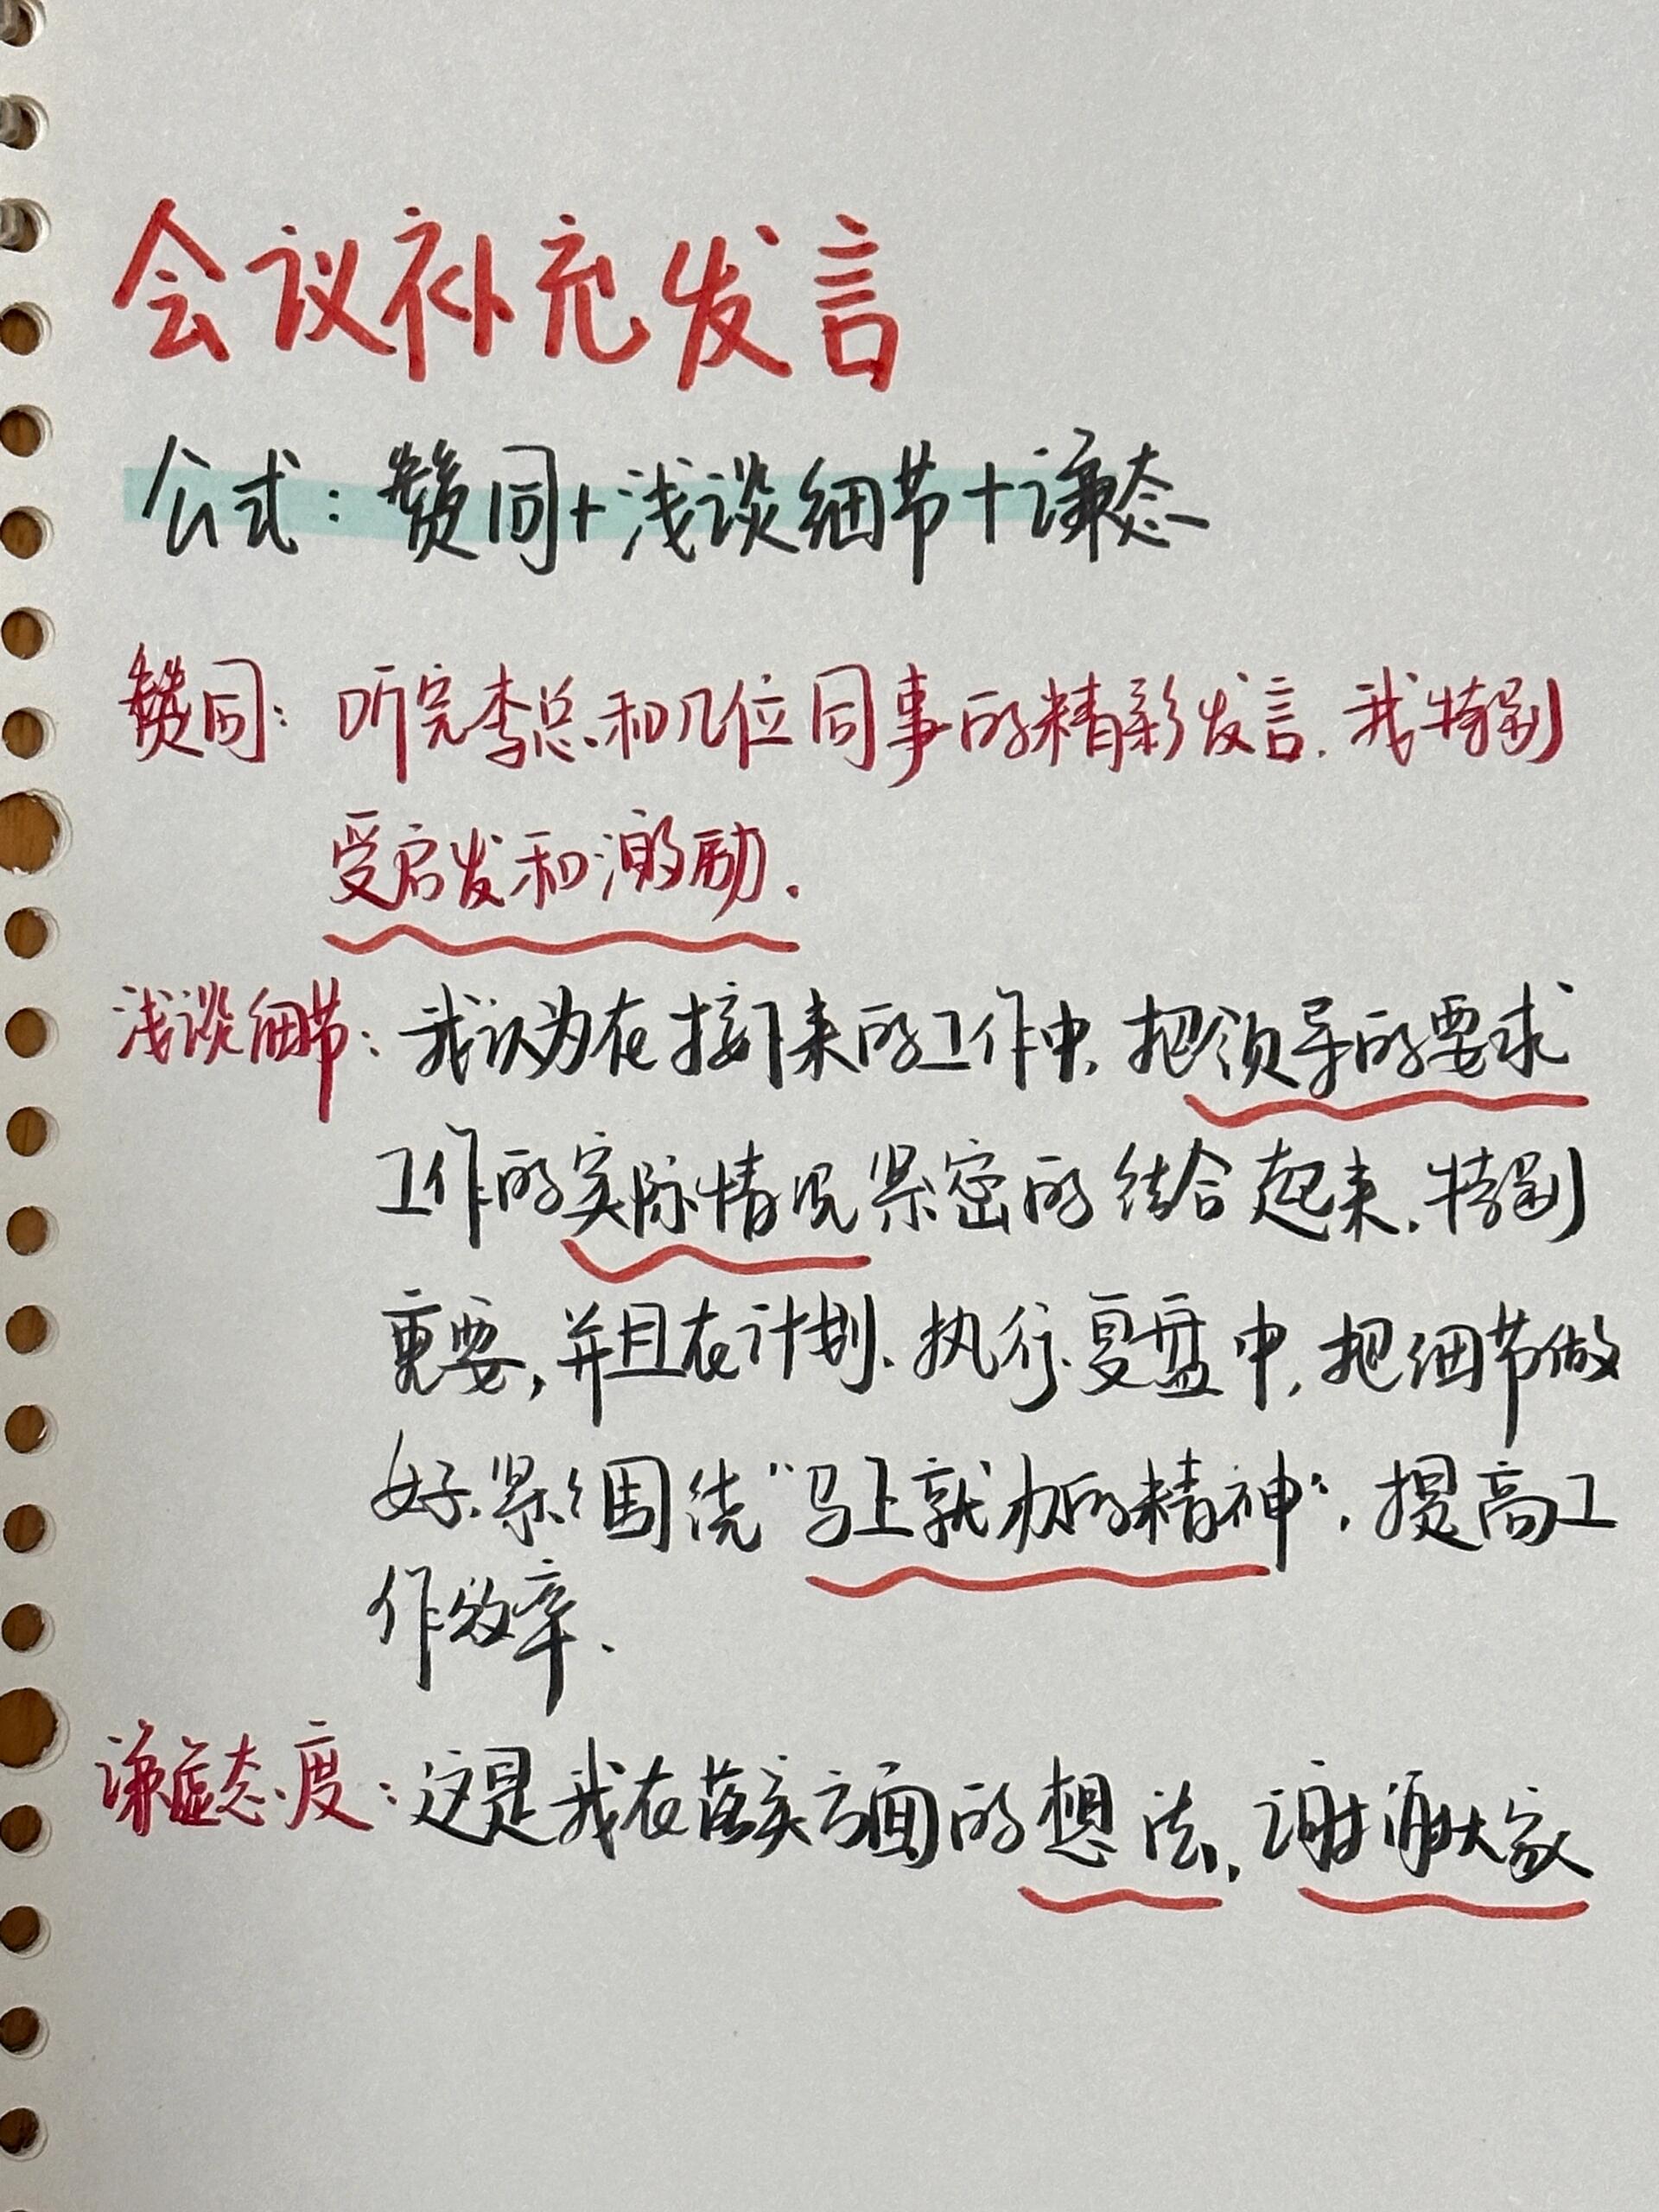 会议补充发言
公式：赞同+浅谈细节+谦态
赞同：听完李总和几位同事的精彩发言，我特别
受启发和激励.
浅谈细节：我认为在接下来的工作中，把领导的要求
工作的实际情况紧密的结合起来，特别
重要，并且在计划、执行、复盘中，把细节做
好.紧紧围绕"马上就办的精神"，提高工
作效率.
谦虚态度：这是我在落实方面的想法，谢谢大家